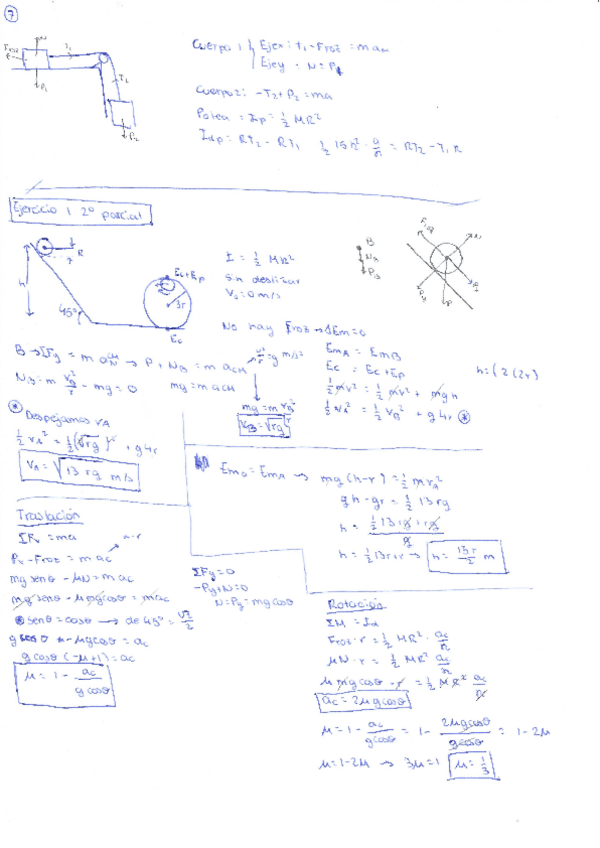 7
N
Froz
T1
P1
T2
P2
Cuerpo 1 { Eje x: T1 - Froz = ma
Eje y: N = P1
Cuerpo 2: -T2 + P2 = ma
Polea = Ip = 1/2 MR²
= RT2 - RT1
= RT2 - T1R
Ejercicio 1 2º parcial
R
h
45º
Ec+Ep
3r
Ec
I = 1/2 MR²
Sin deslizar
No hay Froz → ΔEm = 0
B
NB
PB
N
P
B → ΣFy = m → P + NB = m acn
NB = m vB²/r - mg = 0
mg = m acn
mg = m
vB = √rg
EmA = EmB
Ec = Ec + Ep
1/2 mv² = 1/2 mv² + mgh
1/2 vA² = 1/2 vB² + g4r
h = (2(2r)
Despejamos vA
1/2 vA² = 1/2 (√rg)² + g4r
vA = √13 rg m/s
Em0 = EmA → mg(h-r) = 1/2 m vA²
gh - gr = 1/2 13rg
h = (1/2 13rg + rg)/g
h = 1/2 13r + r → h = 13r/2 m
Traslación
ΣFx = ma
Px - Froz = m ac
mg senθ - μN = m ac
mg senθ - μmg cosθ = m ac
senθ = cosθ → de 45º = √2/2
g senθ - μg cosθ = ac
g cosθ (-μ+1) = ac
μ = 1 - ac/(g cosθ)
ΣFy = 0
-Py + N = 0
N = Py = mg cosθ
Rotación
ΣM = Iα
Froz · r = 1/2 MR² · ac/R
μN · r = 1/2 MR² ac/R
μ mg cosθ · r = 1/2 MR² ac/R
ac = 2μg cosθ
μ = 1 - ac/(g cosθ) = 1 - 2μg cosθ/(g cosθ) = 1 - 2μ
μ = 1 - 2μ → 3μ = 1 μ = 1/3